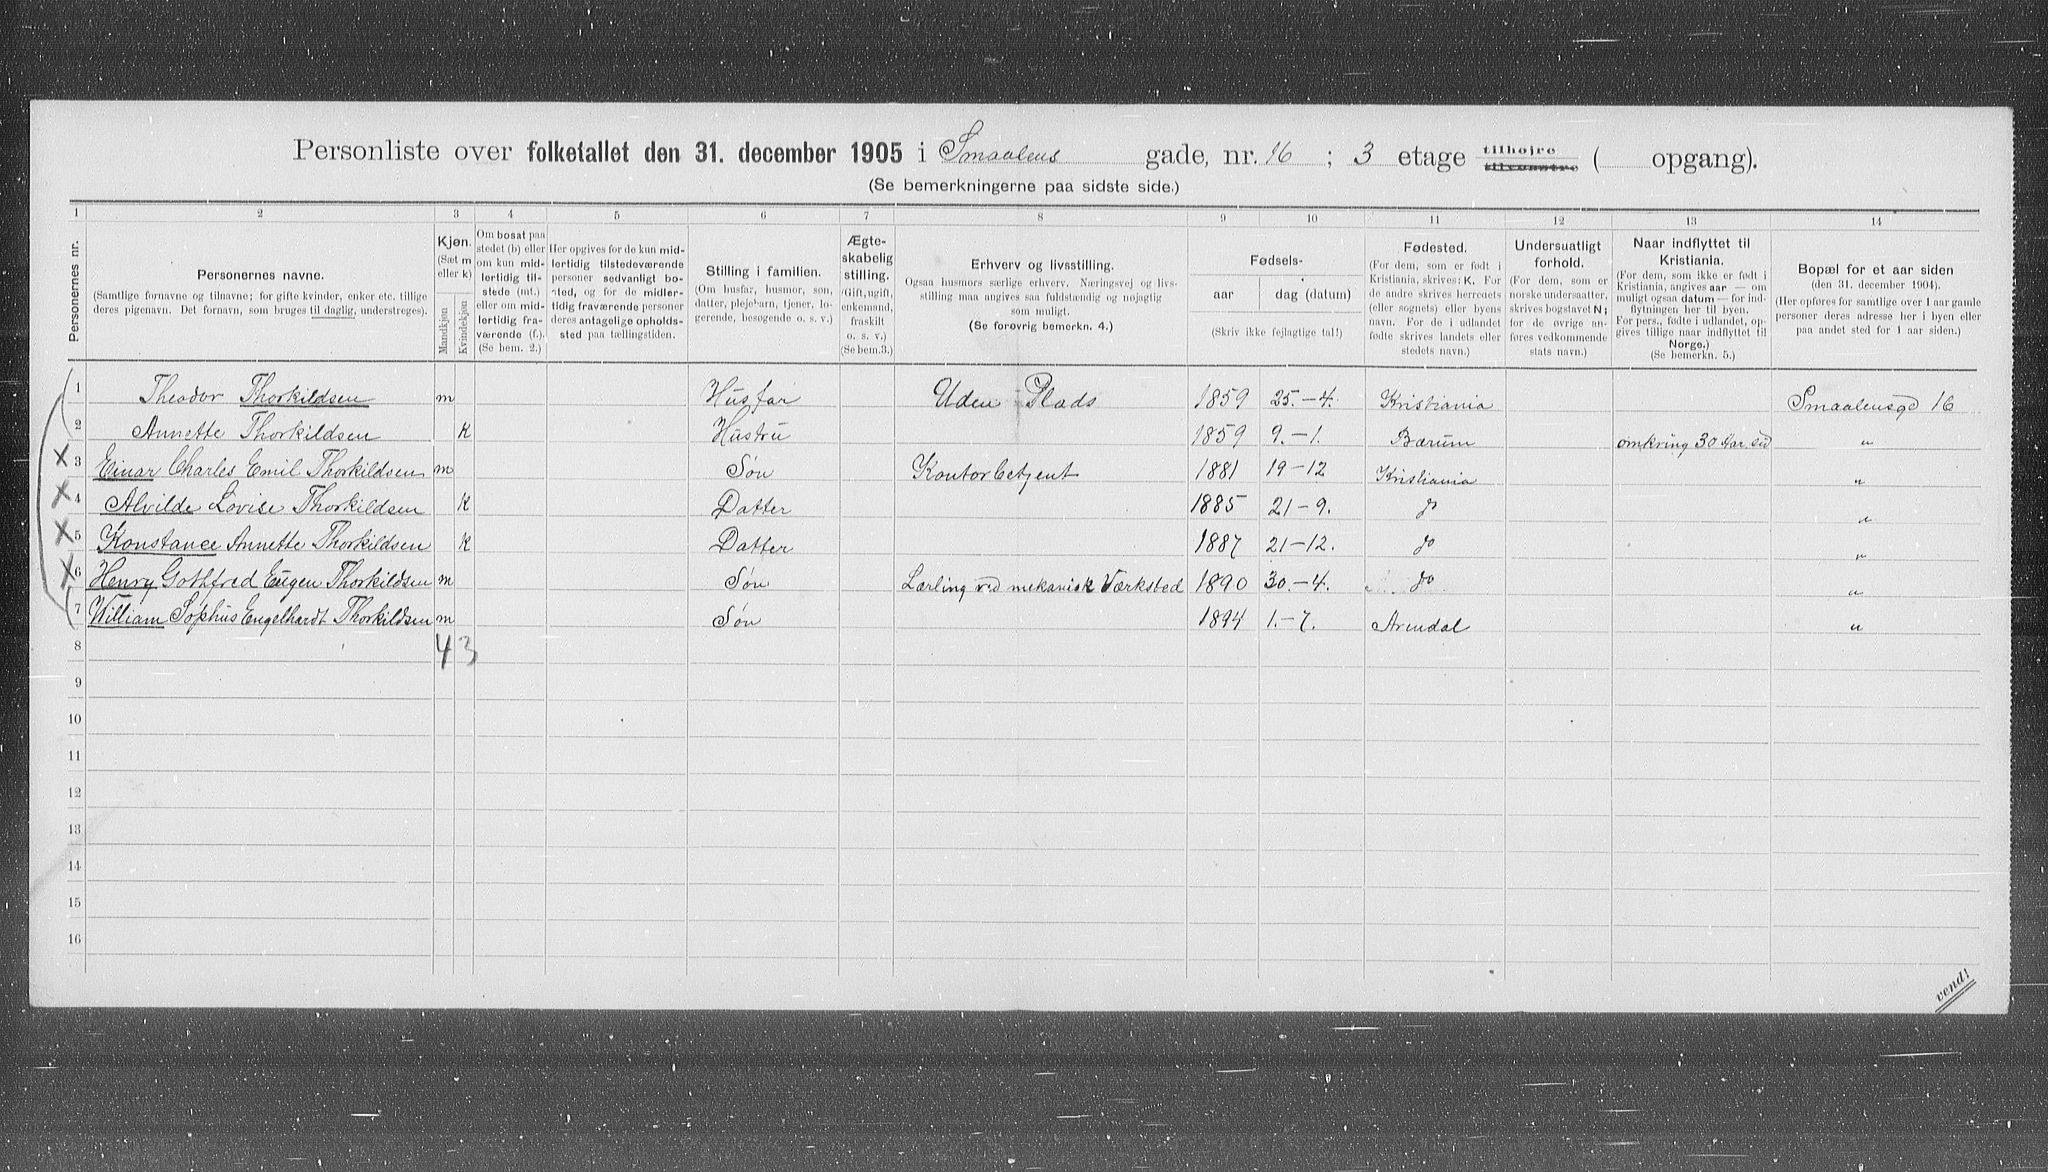 Personliste over folketallet den 31. december 1905 i Smaalens gade, nr. 16 ; 3 etage tilhøjre tilvenstre ( opgang).
(Se bemerkningerne paa sidste side.)
1 2 3 4 5 6 7 8 9 10 11 12 13 14
Personernes nr.
Personernes navne.
(Samtlige fornavne og tilnavne; for gifte kvinder, enker etc. tillige
deres pigenavn. Det fornavn, som bruges til daglig, understreges).
Kjøn.
(Sæt m
eller k)
Mandkjøn
Kvindekjøn
Om bosat paa
stedet (b) eller
om kun mid-
lertidig til-
stede (mt.)
eller om mid-
lertidig fra-
værende (f.).
(Se bem. 2.)
Her opgives for de kun mid-
lertidig tilstedeværende
personer sedvanligt bo-
sted, og for de midler-
tidig fraværende personer
deres antagelige opholds-
sted paa tællingstiden.
Stilling i familien.
(Om husfar, husmor, søn,
datter, plejebarn, tjener, lo-
gerende, besøgende o. s. v.)
Ægte-
skabelig
stilling.
(Gift, ugift,
enkemand,
fraskilt
o. s. v.)
(Se bem.3.)
Erhverv og livsstilling.
Ogsaa husmors særlige erhverv. Næringsvej og livs-
stilling maa angives saa fuldstændig og nøjagtig
som muligt.
(Se forøvrig bemerkn. 4.)
Fødsels-
aar
dag (datum)
(Skriv ikke fejlagtige tal!)
Fødested.
(For dem, som er født i
Kristiania, skrives: K. For
de andre skrives herredets
(eller sognets) eller byens
navn. For de i udlandet
fødte skrives landets eller
stedets navn.)
Undersaatligt
forhold.
(For dem, som er
norske undersaatter,
skrives bogstavet N;
for de øvrige an-
føres vedkommende
stats navn.)
Naar indflyttet til
Kristiania.
(For dem, som ikke er født i
Kristiania, angives aar — om
muligt ogsaa datum — for ind-
flytningen her til byen.
For pers., fødte i udlandet, op-
gives tillige naar indflyttet til
Norge.)
(Se bemerkn. 5.)
Bopæl for et aar siden
(den 31. december 1904).
(Her opføres for samtlige over 1 aar gamle
personer deres adresse her i byen eller
paa andet sted for 1 aar siden.)
1 Theodor Thorkildsen m Husfar Uden Plads 1859 25.-4. Kristiania Smaalensgd 16
2 Annette Thorkildsen K Hustru 1859 9.-1. Bærum omkring 30 Aar sid "
3 Einar Charles Emil Thorkildsen m Søn Kontorbetjent 1881 19-12 Kristiania "
4 Alvilde Lovise Thorkildsen K Datter 1885 21-9. do "
5 Konstance Annette Thorkildsen K Datter 1887 21-12. do "
6 Henry Gothfred Eugen Thorkildsen m Søn Lærling ved mekanisk Værksted 1890 30.-4. do "
7 William Sophus Engelhardt Thorkildsen m Søn 1894 1.-7. Arendal "
8 4 3
9
10
11
12
13
14
15
16
vend!